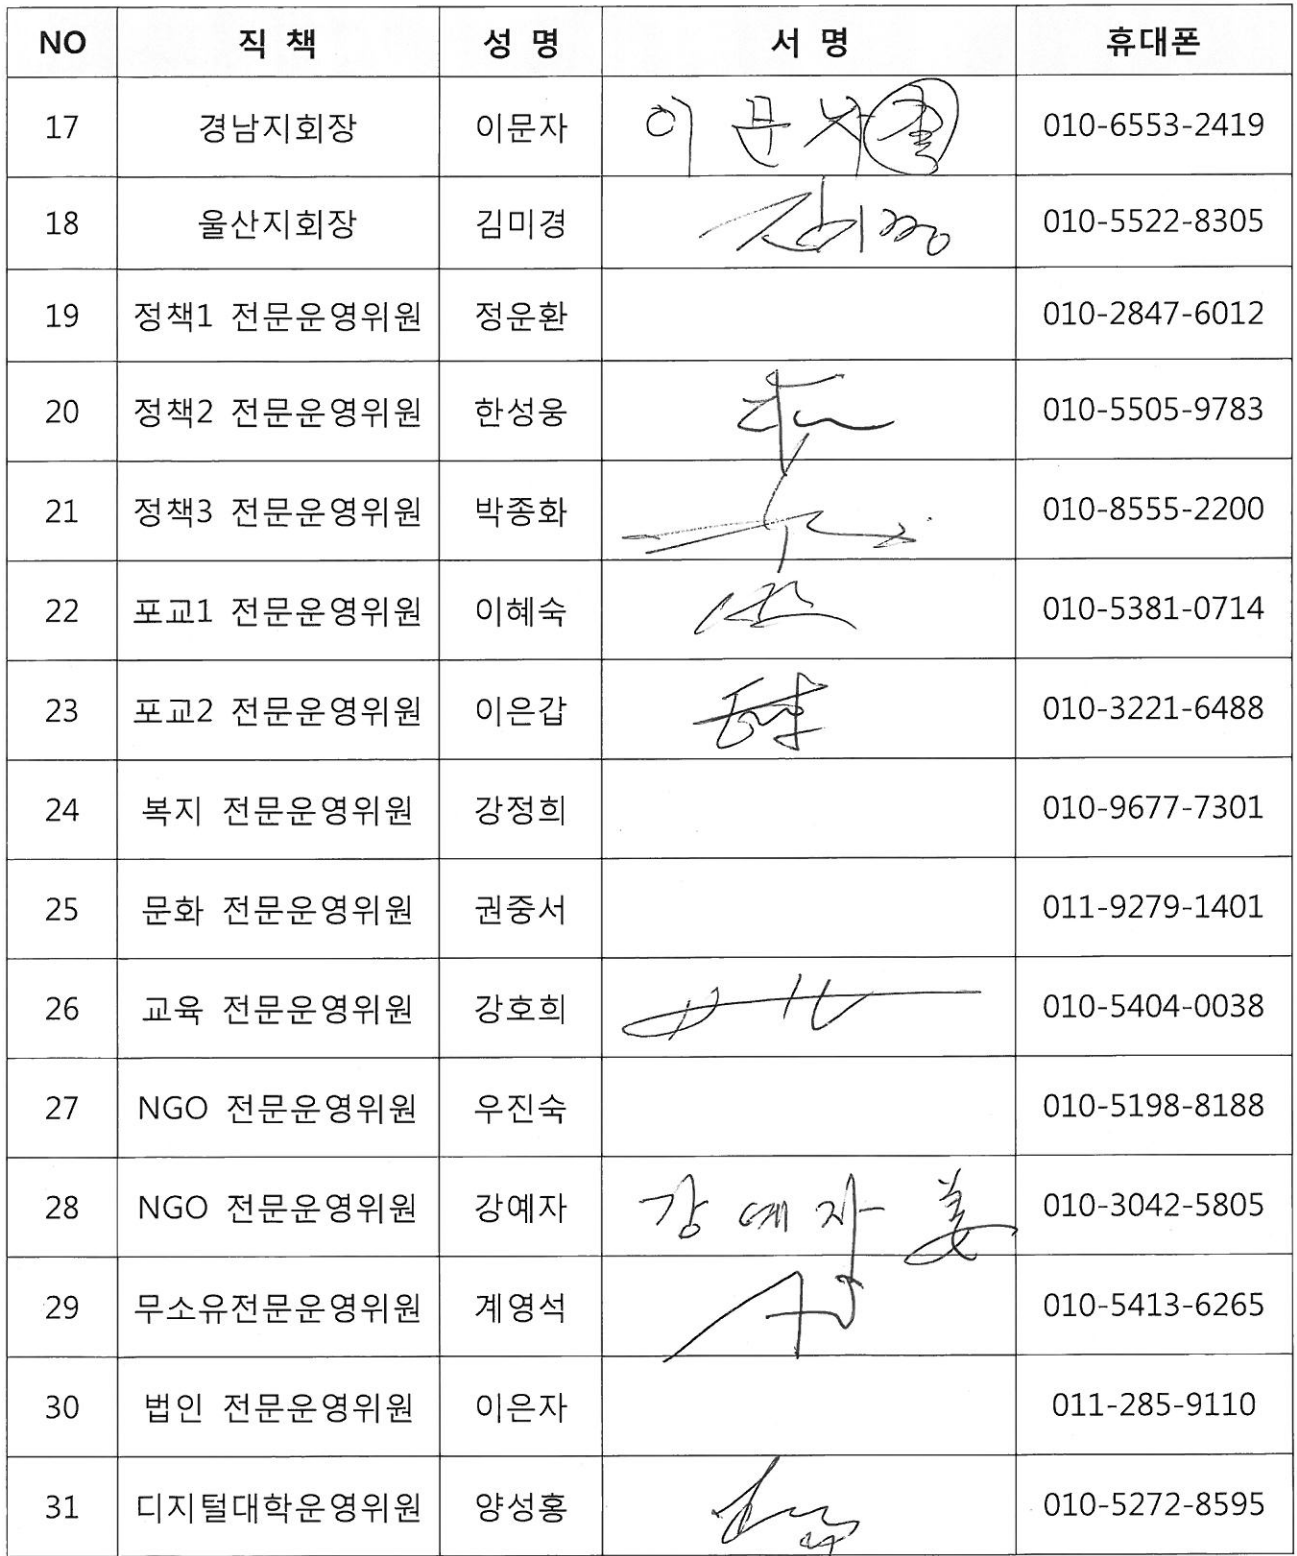 NO 직 책 성 명 서 명 휴대폰
17 경남지회장 이문자 이문자 010-6553-2419
18 울산지회장 김미경 김미경 010-5522-8305
19 정책1 전문운영위원 정운환 010-2847-6012
20 정책2 전문운영위원 한성웅 010-5505-9783
21 정책3 전문운영위원 박종화 010-8555-2200
22 포교1 전문운영위원 이혜숙 010-5381-0714
23 포교2 전문운영위원 이은갑 010-3221-6488
24 복지 전문운영위원 강정희 010-9677-7301
25 문화 전문운영위원 권중서 011-9279-1401
26 교육 전문운영위원 강호희 010-5404-0038
27 NGO 전문운영위원 우진숙 010-5198-8188
28 NGO 전문운영위원 강예자 강예자 姜 010-3042-5805
29 무소유전문운영위원 계영석 010-5413-6265
30 법인 전문운영위원 이은자 011-285-9110
31 디지털대학운영위원 양성홍 010-5272-8595